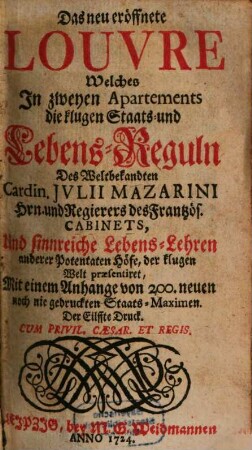 Das neu eröffnete
LOUVRE
Welches
In zweyen Apartements
die klugen Staats- und
Lebens-Reguln
Des Weltbekandten
Cardin. JVLII MAZARINI
Hrn. und Regierers des Frantzös.
CABINETS,
Und sinnreiche Lebens-Lehren
anderer Potentaten Höfe, der klugen
Welt præsentiret,
Mit einem Anhange von 200. neuen
noch nie gedruckten Staats-Maximen.
Der Eilffte Druck.
CUM PRIVIL. CÆSAR. ET REGIS.
LEIPZIG, bey M. G. Weidmannen
ANNO 1724.